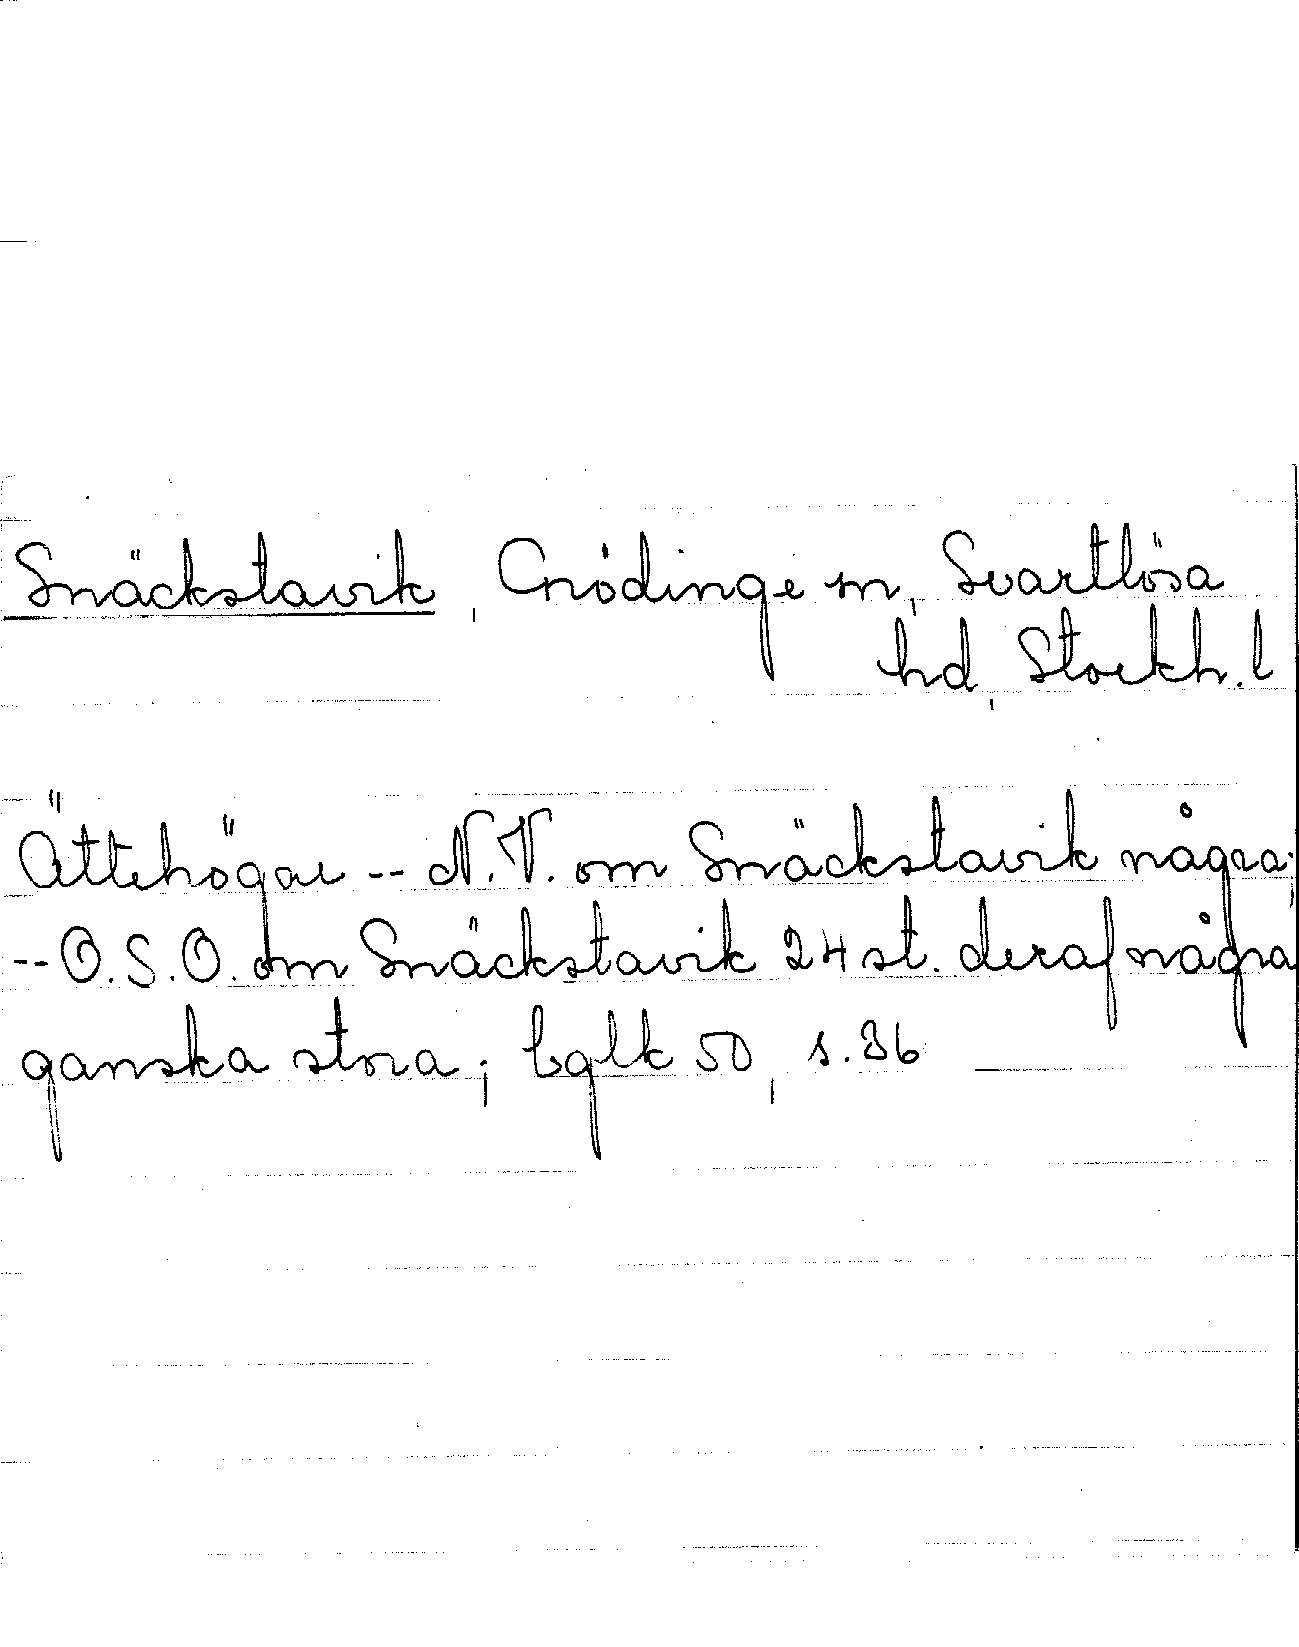 Snäckstavik, Grödinge sn, Svartlösa
hd, Stockh.l
Ättehögar -- N.V. om Snäckstavik några;
-- O.S.O. om Snäckstavik 24 st. deraf några
ganska stora; bglk 50, s.36